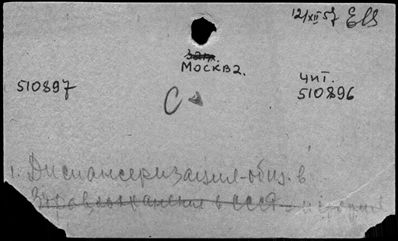 12/XII 57
Москва.
510897
С
чит.
510896
1. Диспансеризация - обяз. в
Здравоохранения в СССР -